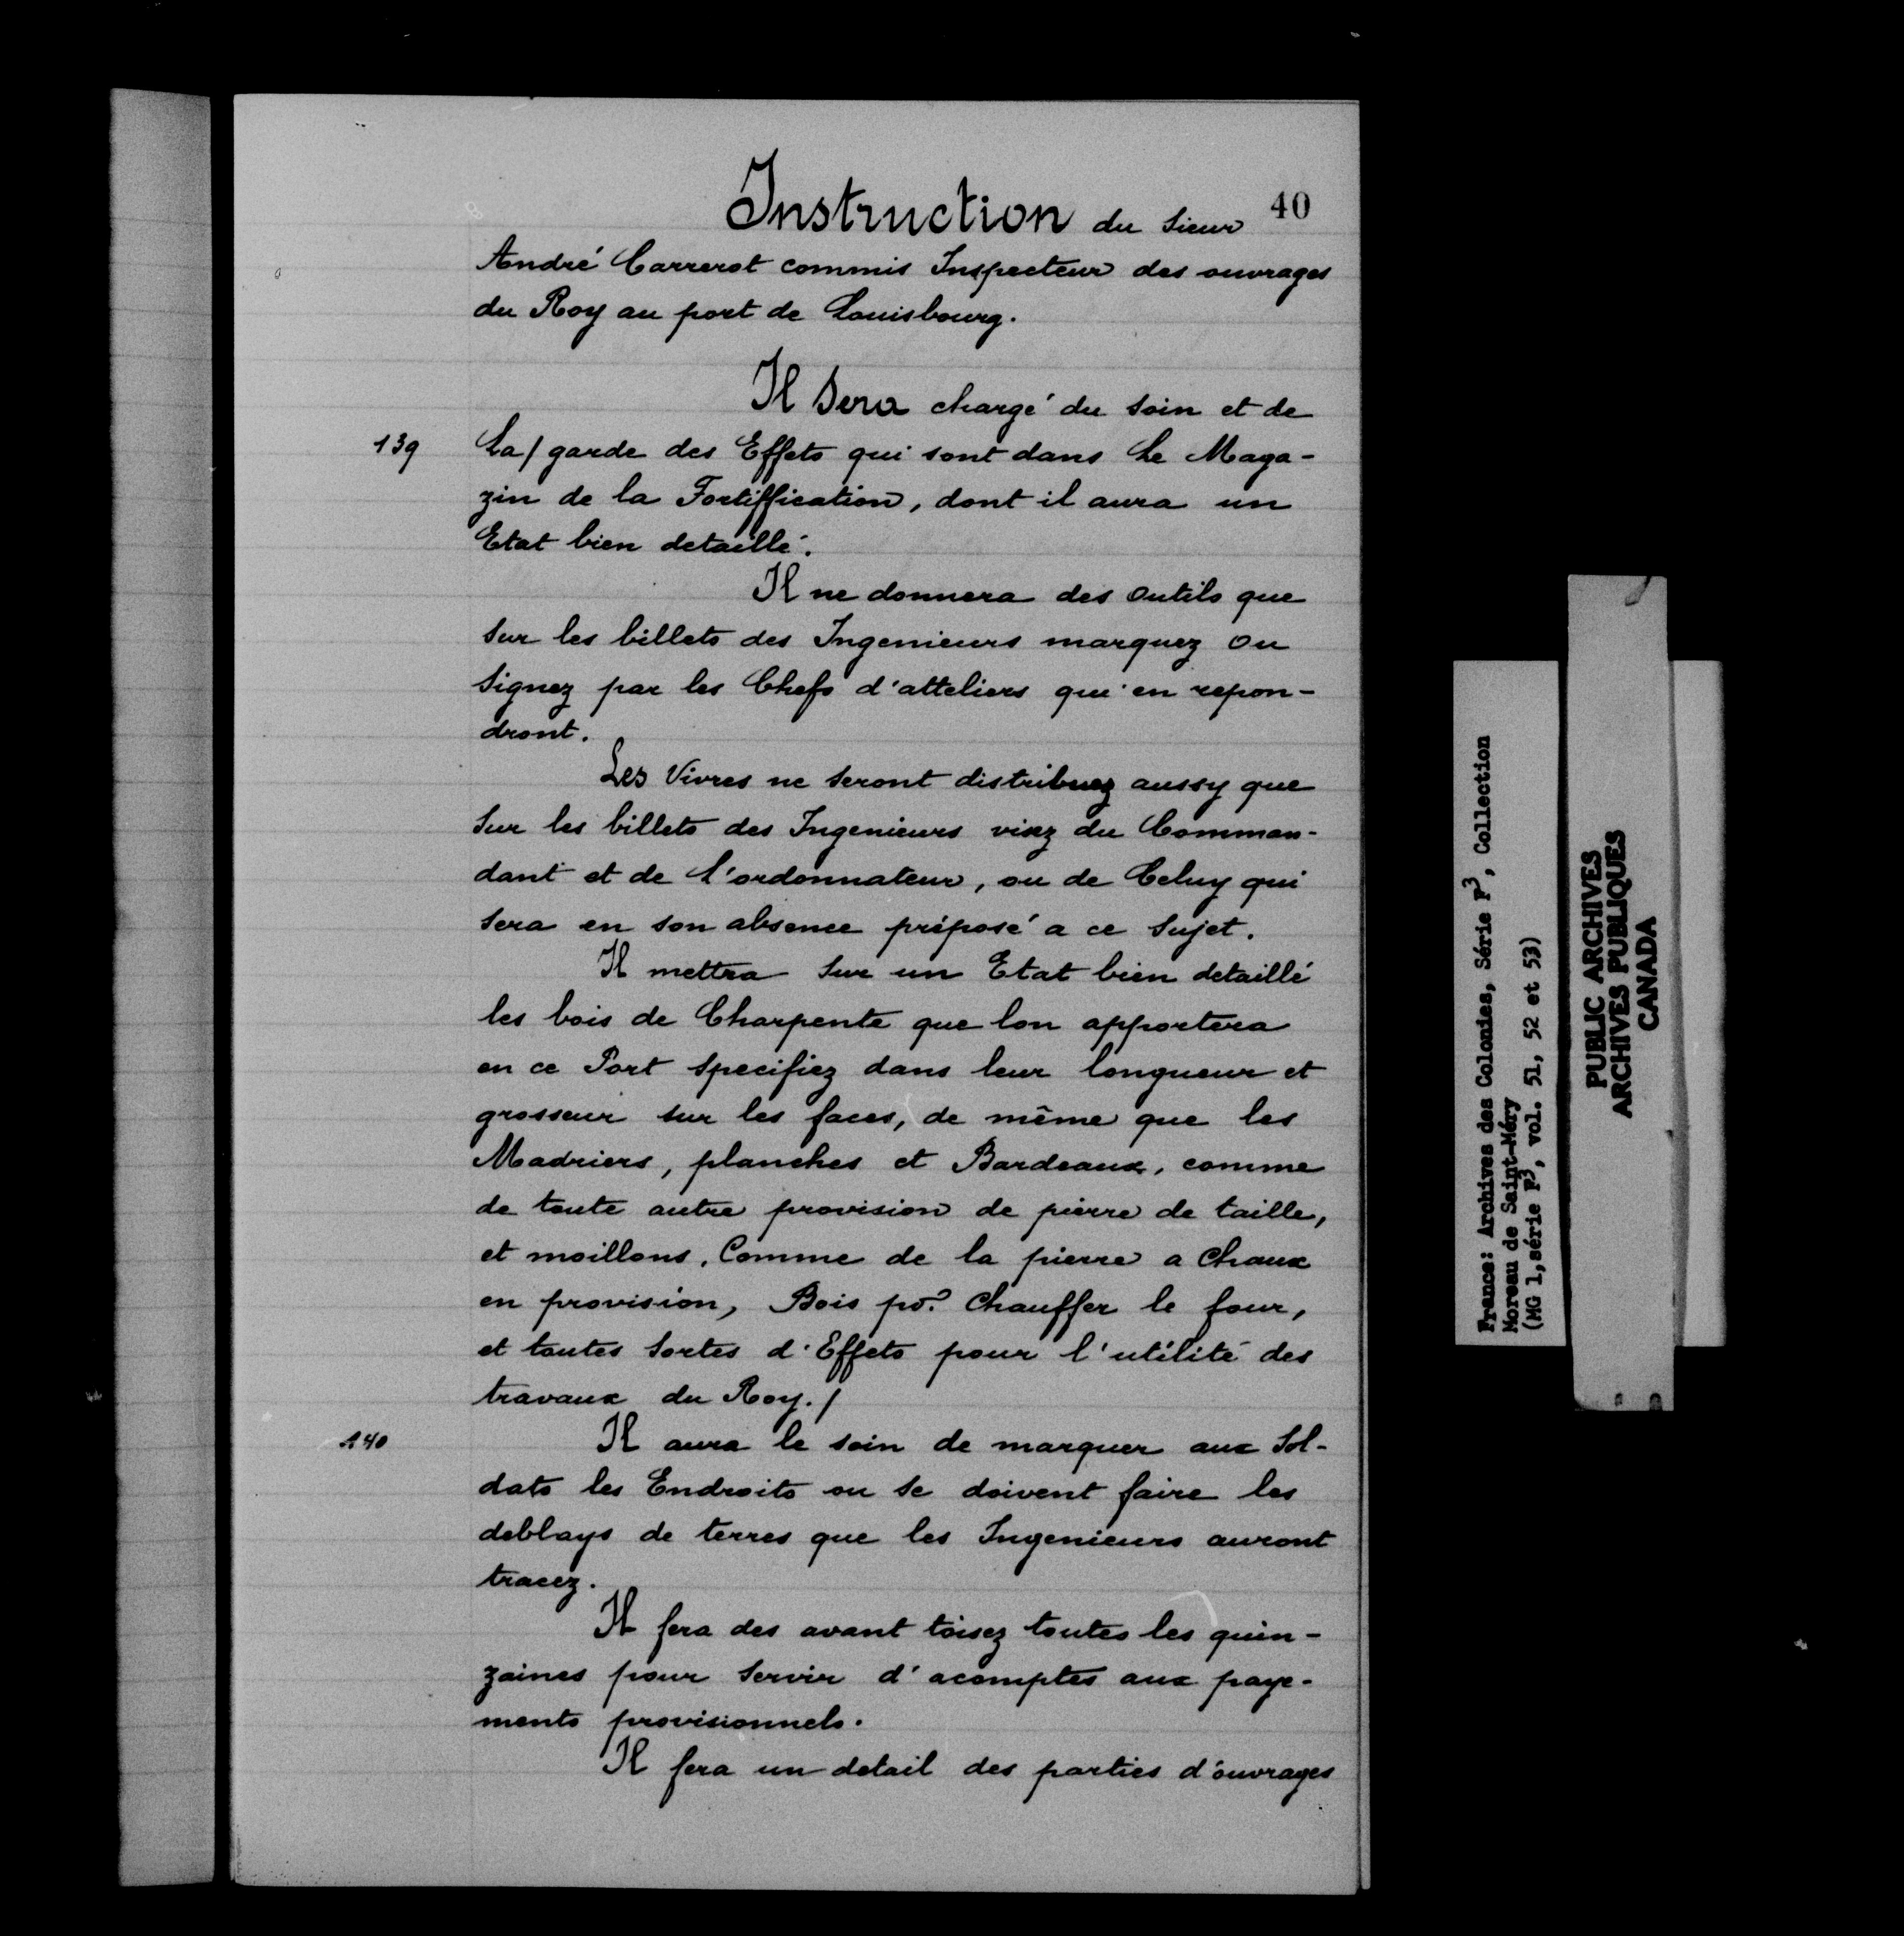 40
Instruction du Sieur
André Carrerot commis Inspecteur des ouvrages
du Roy au port de Louisbourg.
Il Sera chargé du soin et de
139
La/garde des Effets qui sont dans Le Maga-
zin de la Fortiffication, dont il aura un
Etat bien detaillé.
Il ne donnera des Outils que
sur les billets des Ingenieurs marquez ou
Signez par les Chefs d'atteliers qui en repon-
dront.
Les Vivres ne seront distribuez aussy que
sur les billets des Ingenieurs visez du Comman-
dant et de L'ordonnateur, ou de Celuy qui
sera en son absence préposé a ce Sujet.
Il mettra sur un Etat bien detaillé
les bois de Charpente que lon apportera
en ce Port specifiez dans leur longueur et
grosseur sur les faces, de même que les
Madriers, planches et Bardeaux, comme
de toute autre provision de pierre de taille,
et moillons, Comme de la pierre a Chaux
en provision, Bois po.r Chauffer le four,
et toutes sortes d'Effets pour l'utilité des
travaux du Roy./
140
Il aura le soin de marquer aux Sol-
dats les Endroits ou se doivent faire les
deblays de terres que les Ingenieurs auront
tracez.
Il fera des avant toisez toutes les quin-
zaines pour Servir d'acomptes aux paye-
ments provisionnels.
Il fera un detail des parties d'ouvrages
France: Archives des Colonies, Série F3, Collection
Moreau de Saint-Méry
(MG 1, série F3, vol. 51, 52 et 53)
PUBLIC ARCHIVES
ARCHIVES PUBLIQUES
CANADA